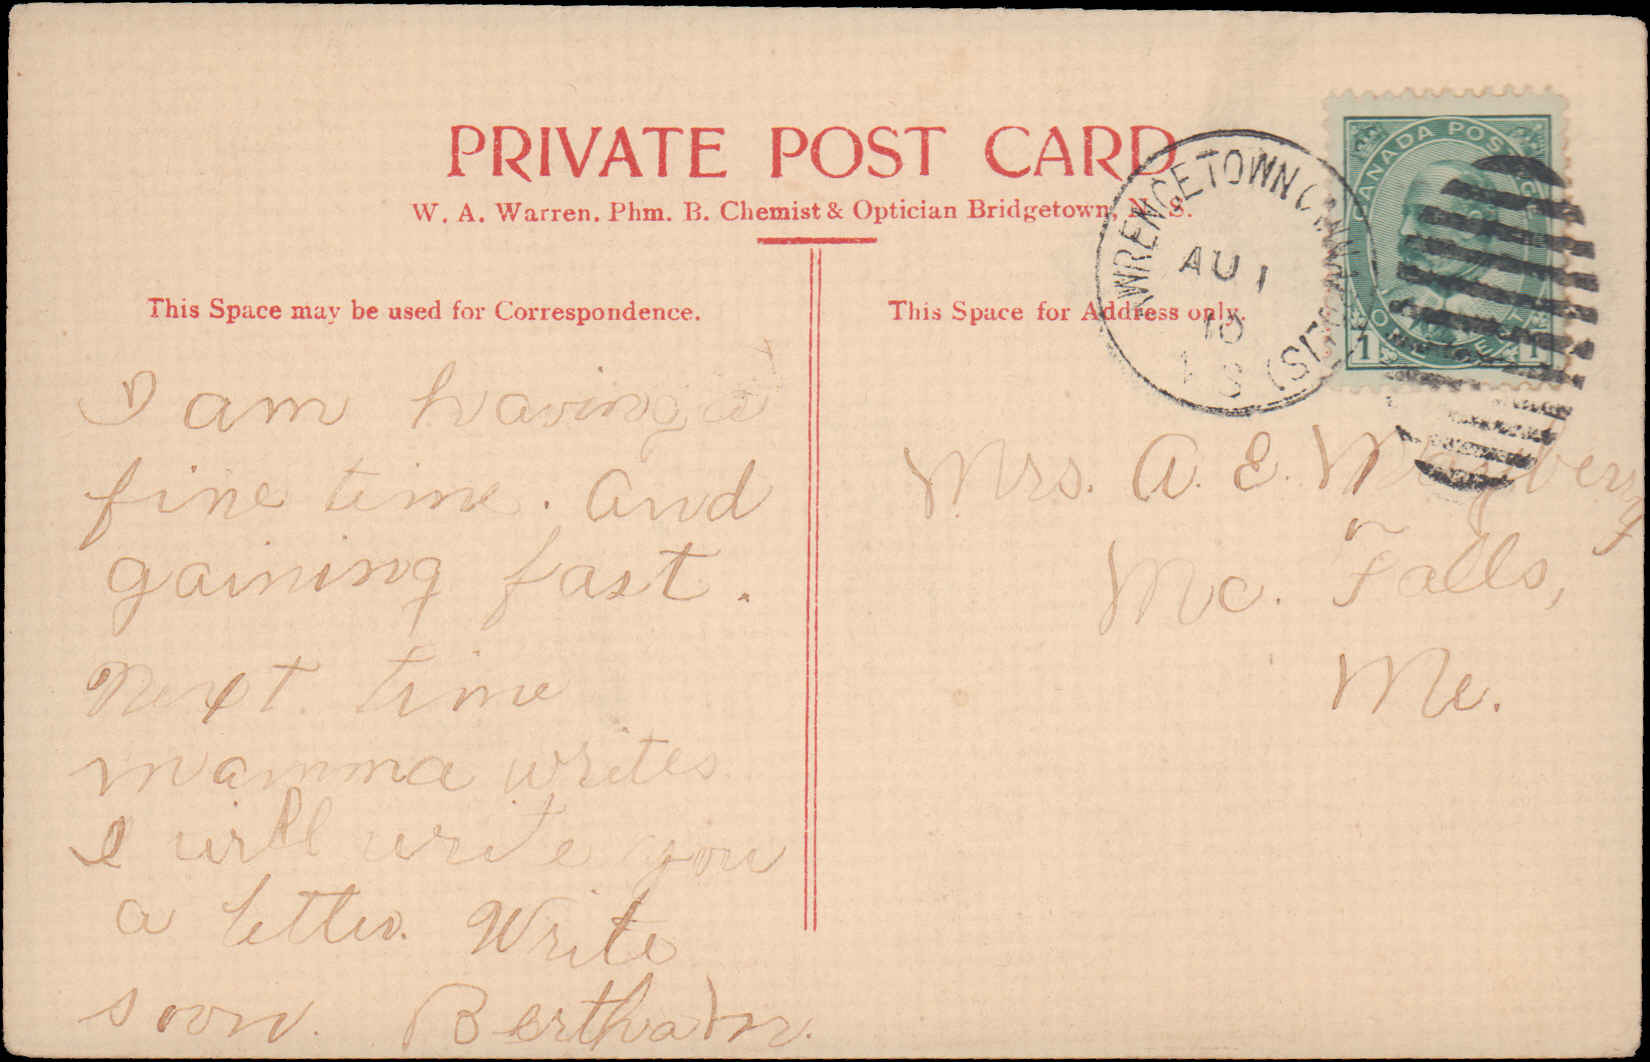 PRIVATE POST CARD
W. A. Warren. Phm. B. Chemist & Optician Bridgetown, N. S.
This Space may be used for Correspondence.
This Space for Address only.
WRENCETOWN
AU 1
10
CANADA POSTAGE
1 1
I am having a
fine time. And
gaining fast.
Next time
mamma writes
I will write you
a letter. Write
soon. Bertha M.
Mrs. A. E.
Mc. Falls,
Me.